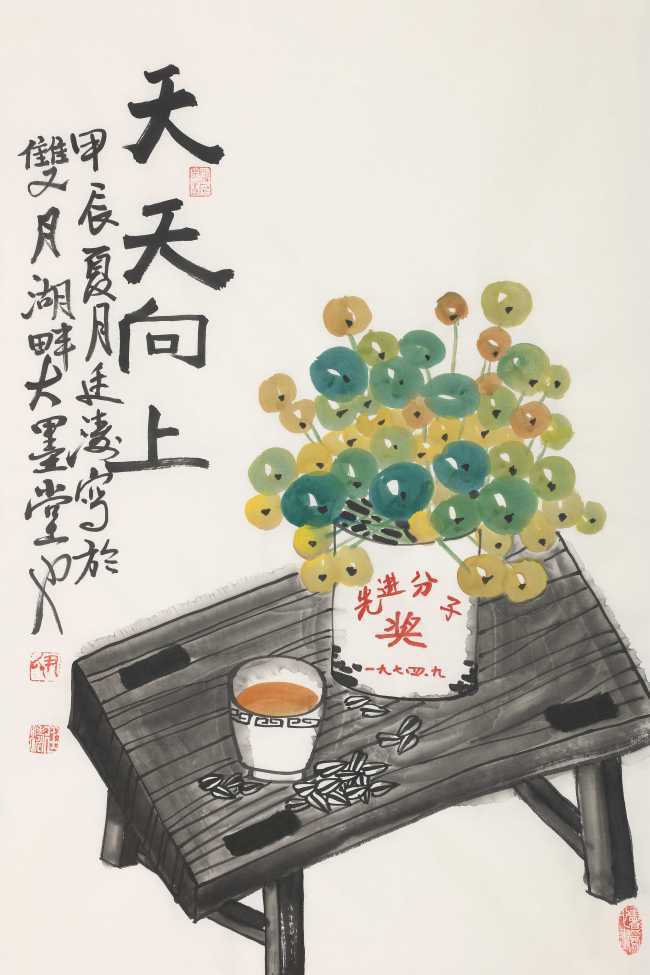 天天向上
甲辰夏月廷凌寫於
雙月湖畔大墨堂也
先进分子
奖
一九七四.九